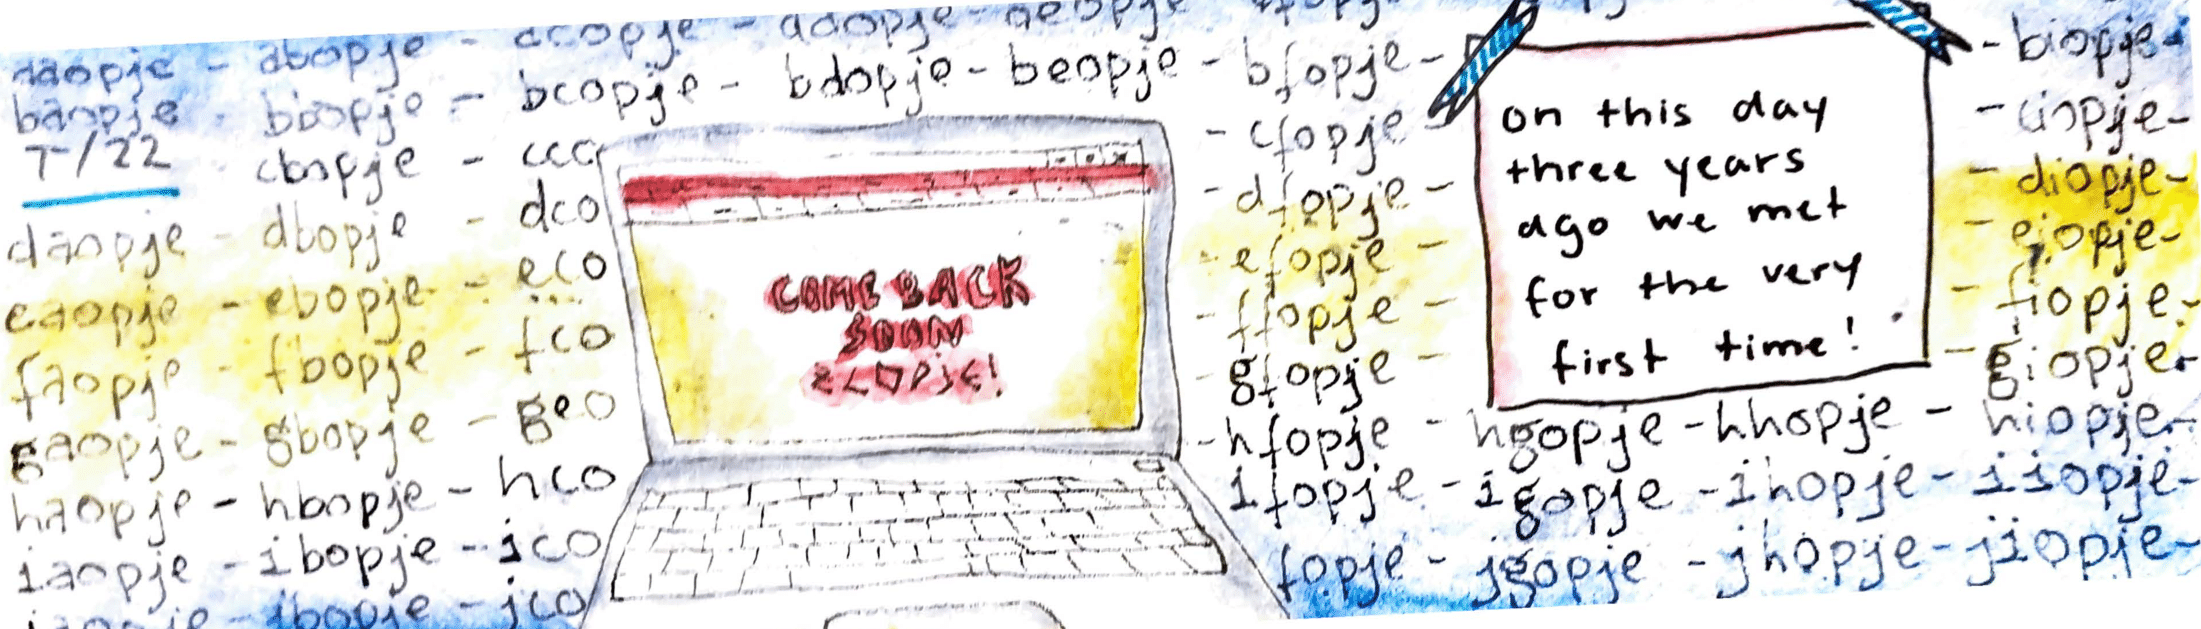 aaopje - abopje - acopje - adopje - aeopje - afopje
baopje - bbopje - bcopje - bdopje - beopje - bfopje - - biopje-
7-/22 cbopje - cco - cfopje - - ciopje-
daopje - dbopje - dco - dfopje - - diopje-
eaopje - ebopje - eco - efopje - - eiopje-
faopje - fbopje - fco - ffopje - - fiopje-
gaopje - gbopje - gco - gfopje - - giopje-
haopje - hbopje - hco - hfopje - hgopje - hhopje - hiopje-
iaopje - ibopje - ico ifopje - igopje - ihopje - iiopje-
jaopje - jbopje - jco fopje - jgopje - jhopje - jiopje-
COME BACK
SOON
ZLOPje!
on this day
three years
ago we met
for the very
first time!